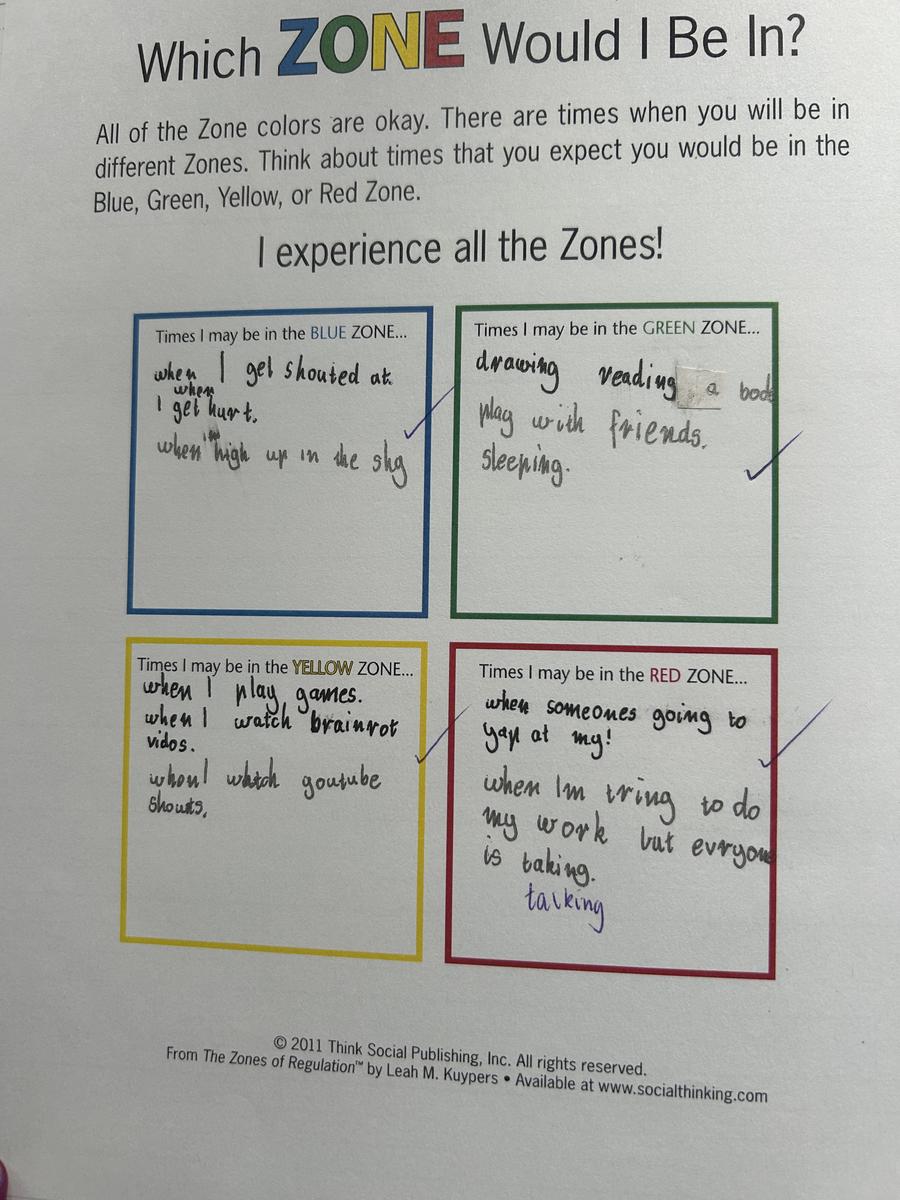 Which ZONE Would I Be In?
All of the Zone colors are okay. There are times when you will be in
different Zones. Think about times that you expect you would be in the
Blue, Green, Yellow, or Red Zone.
I experience all the Zones!
Times I may be in the BLUE ZONE...
when I get shouted at
when
I get hurt.
when high up in the sky
Times I may be in the GREEN ZONE...
drawing reading a book
play with friends.
sleeping.
Times I may be in the YELLOW ZONE...
when I play games.
when I watch brainrot
vidos.
when I youtube
Times I may be in the RED ZONE...
when someones going to
yap at my!
when Im tring to do
my work but evryone
is taking.
talking
© 2011 Think Social Publishing, Inc. All rights reserved.
From The Zones of Regulation™ by Leah M. Kuypers • Available at www.socialthinking.com